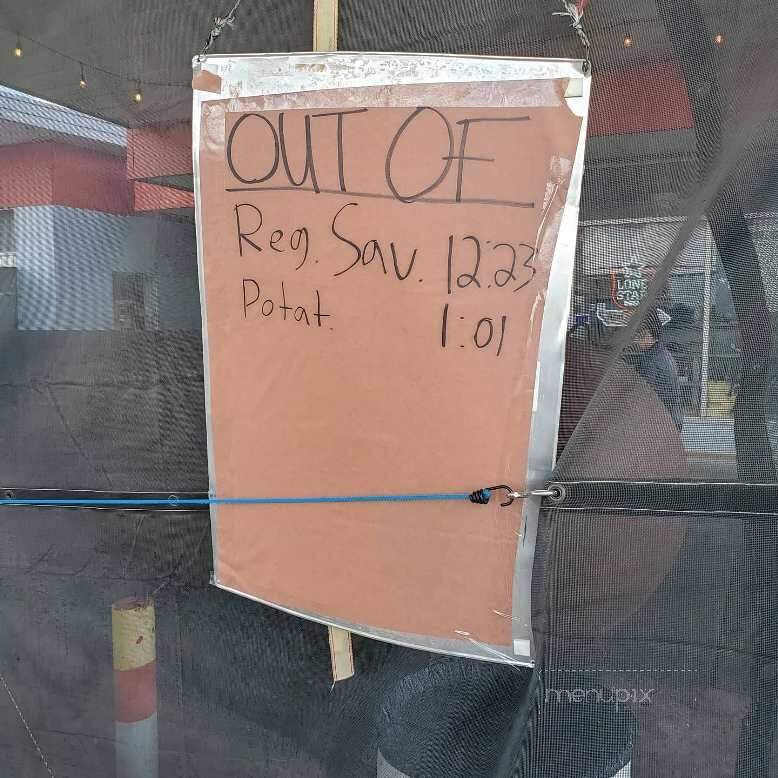 OUT OF
Reg. Sav. 12:23
Potat. 1:01
LONE
STAR
menupix